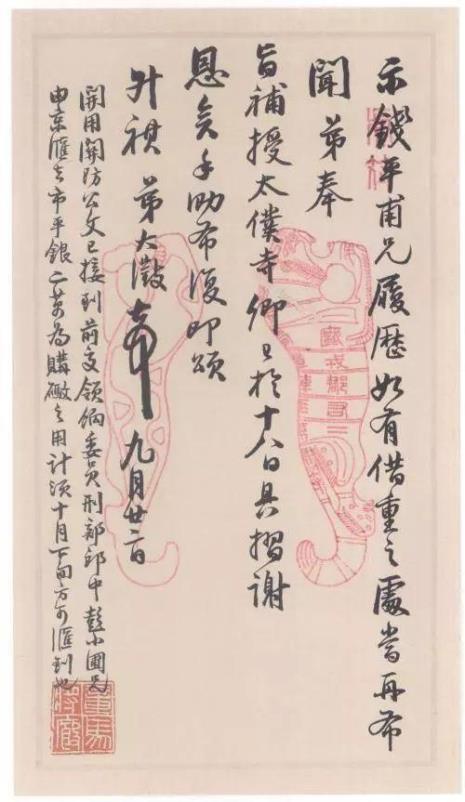 示錢平甫兄履歷如有借重之處當再布
聞弟奉
旨補授太僕寺卿已於十八日具摺謝
恩矣手泐布復叩頌
升祺弟大澂頓首九月廿二日
開用關防公文已接到前交領餉委員刑部郎中彭小圃兄
由京匯去市平銀二萬為購礮之用計須十月下旬方可匯到也